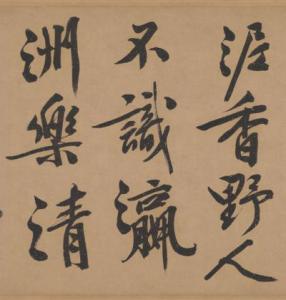 泥香野人
不識瀛
洲樂清